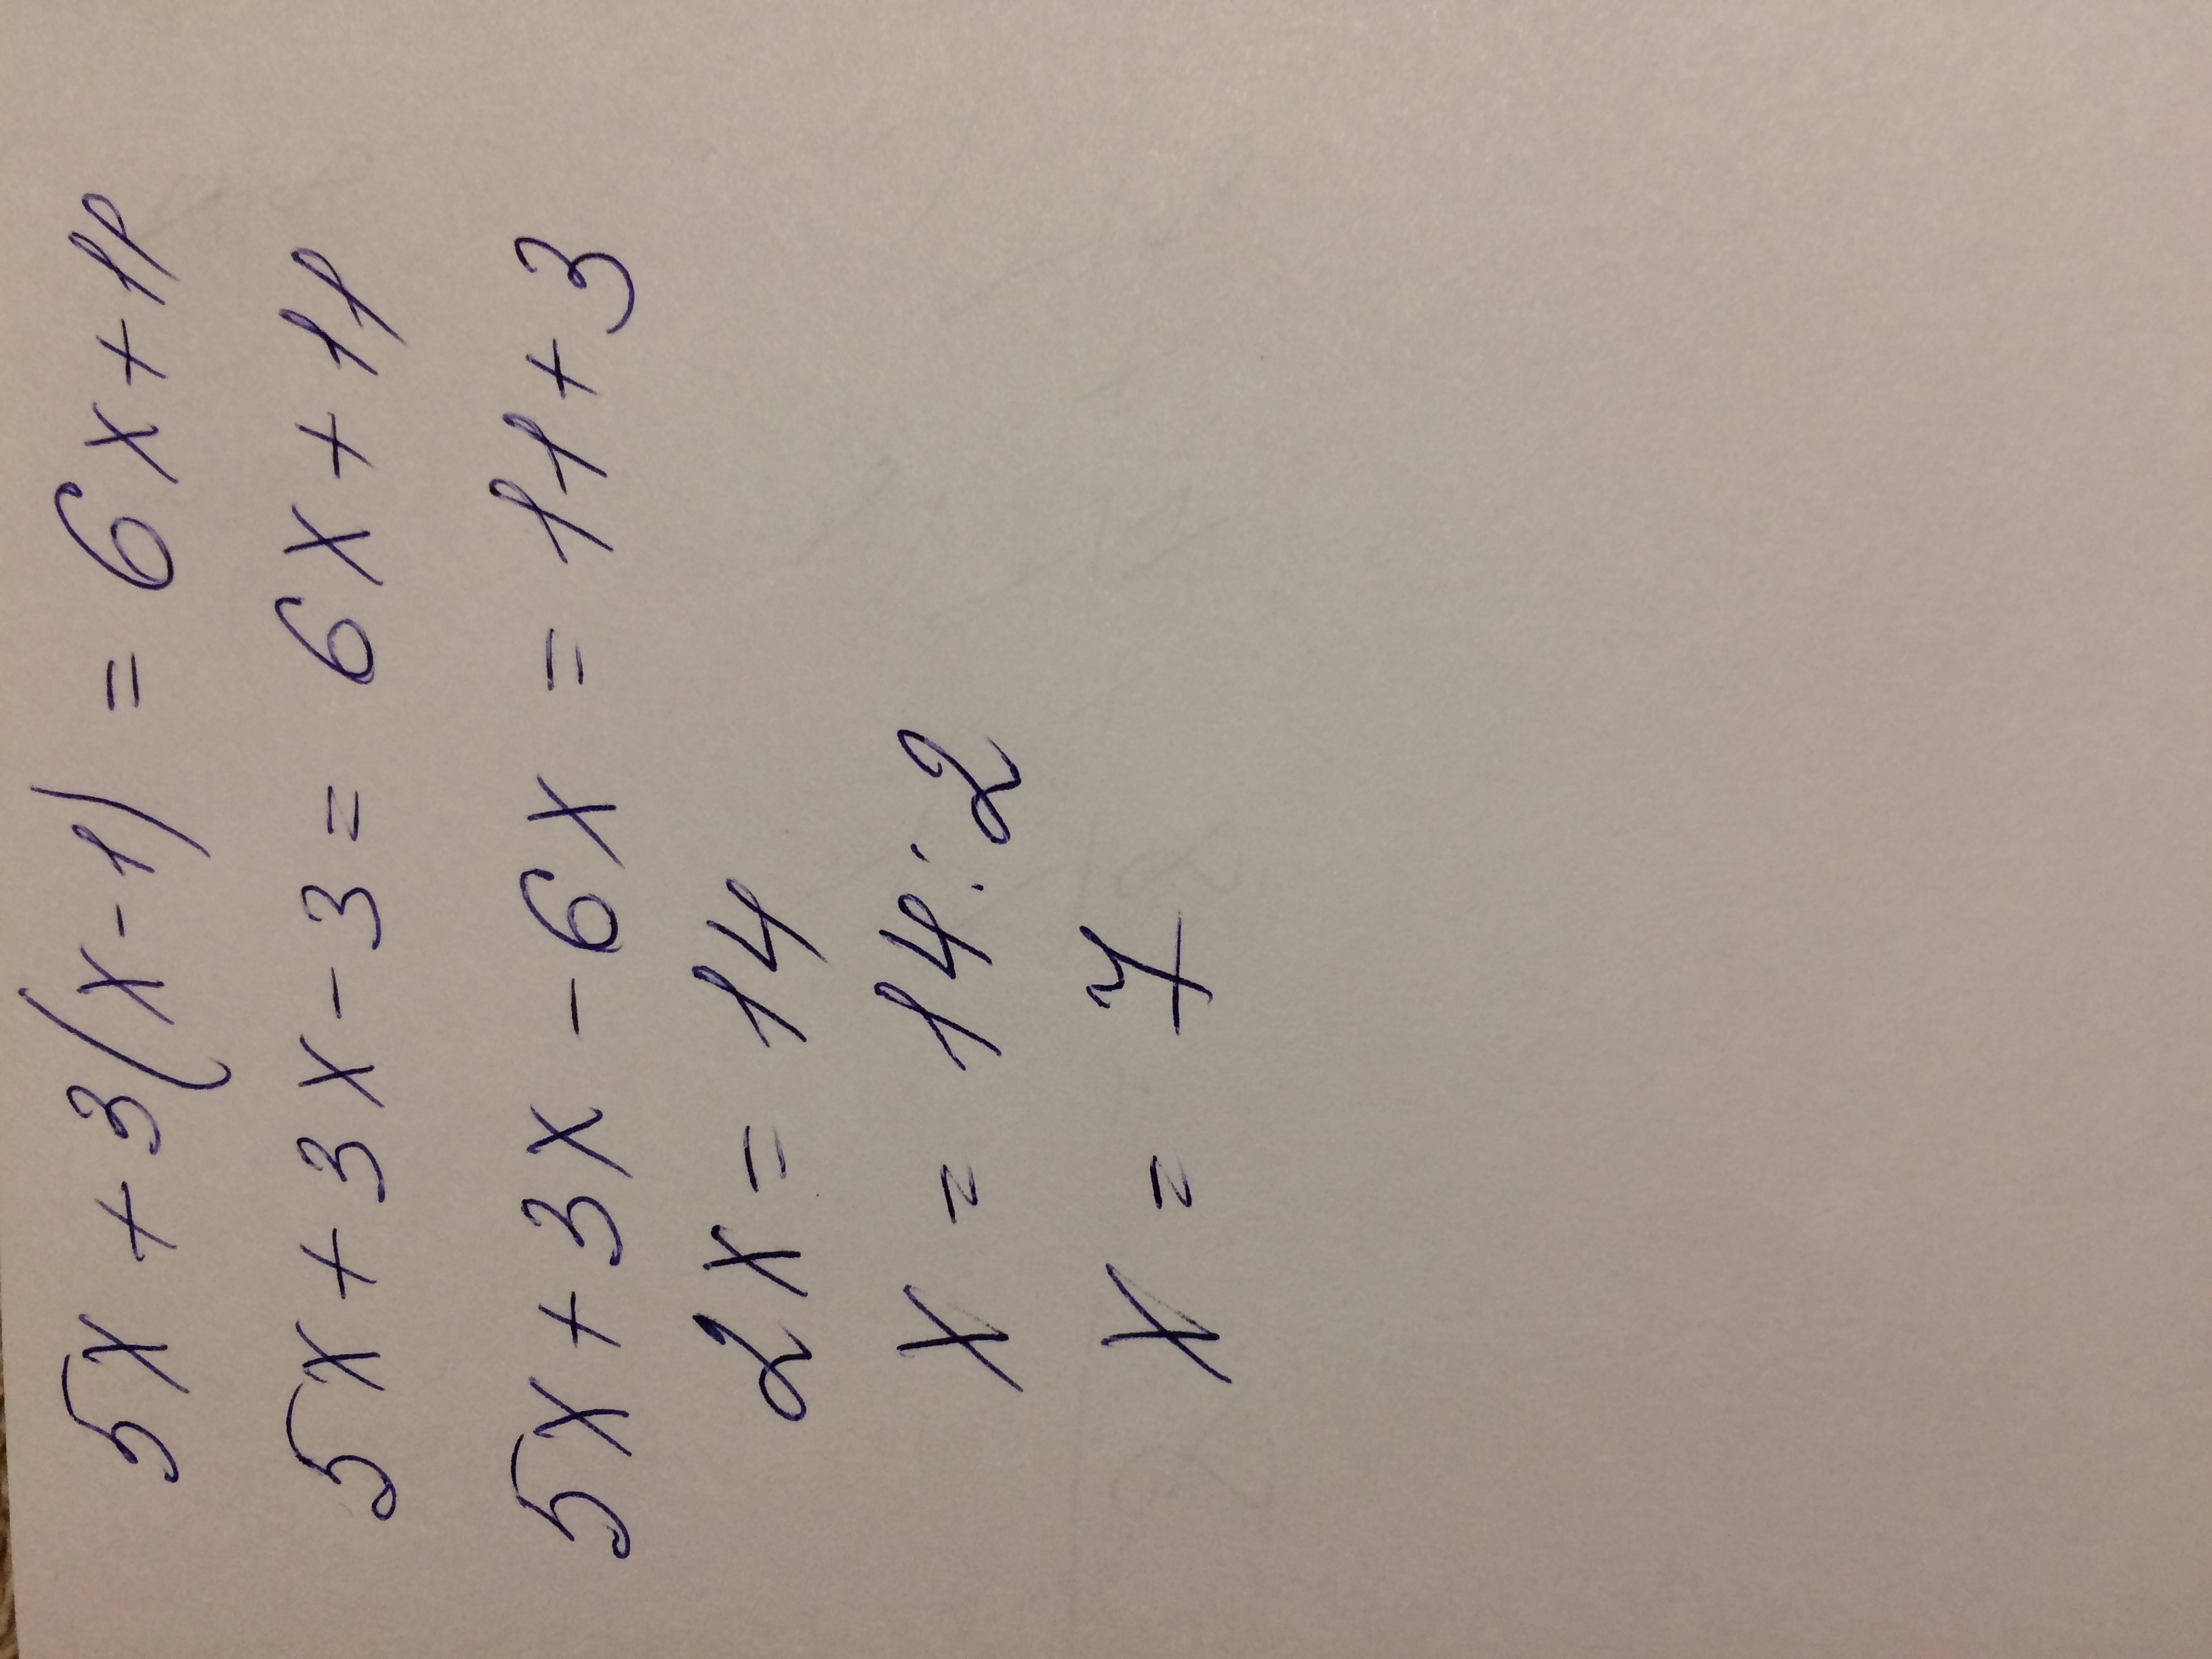 5x + 3(x-1) = 6x + 11
5x + 3x - 3 = 6x + 11
5x + 3x - 6x = 11 + 3
2x = 14
x = 14:2
x = 7